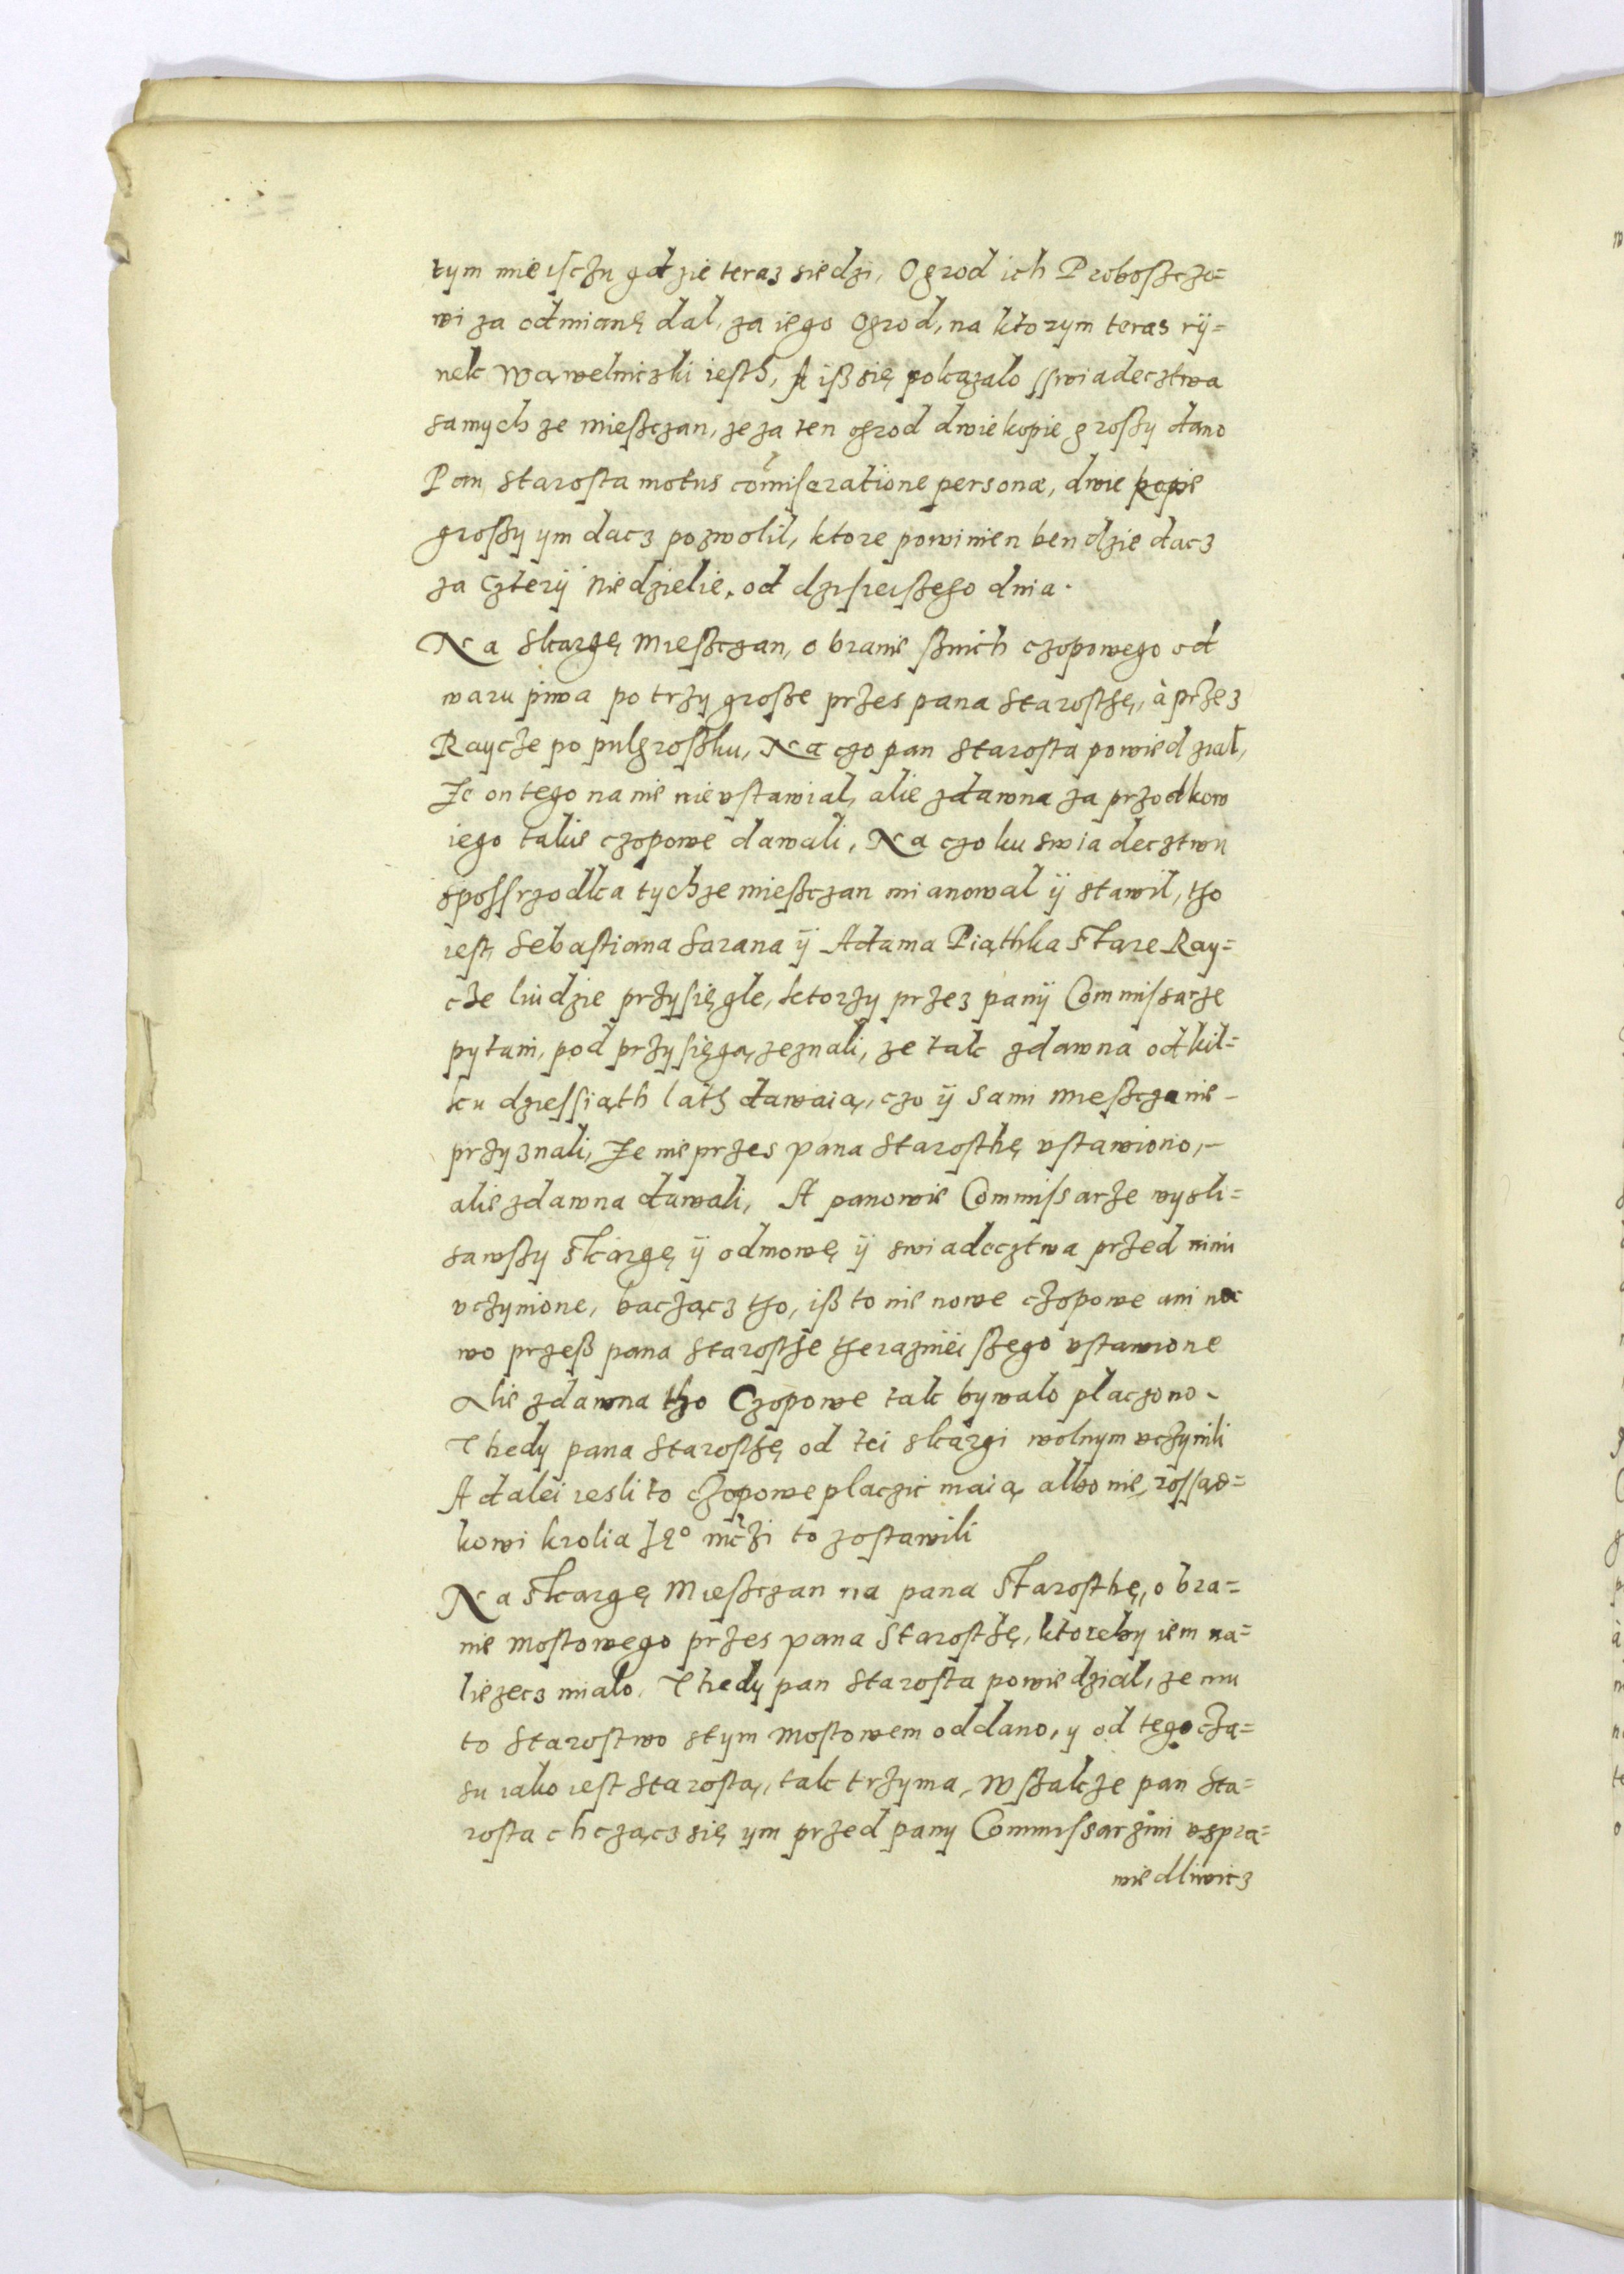 tym mieisczu gdzie teraz siedzi, Ogrod ich Proboszczo=
wi za odmianę dal, za iego Ogrod, na ktorym teras rÿ=
nek Wąwelniczki iesth, A isz się pokazalo sswiadecztwa
samych ze miesczan, ze za ten ogrod dwie kopie groszy dano
Pan Starosta motus cōmiseratione personæ, dwie kopie
groszy ym dacz pozwolil, ktore powinien bendzie dacz
za czterÿ Niedzielie, od dzisieiszego dnia.
Na Skargę Mieszczan, o branie sznich czopowego od
waru piwa po trzy grosze przes pana Starosthę, à przez
Raycze po pulgroszku, Na czo pan Starosta powiedzial,
Ze on tego na nie nie ustawial, alie zdawna za przodkow
iego takie czopowe dawali, Na czo ku swiadecztwu
sposszrzodka tychze mieszczan mianowal ÿ stawil, tho
iest, Sebastiana Sarana ÿ Adama Piąthka Stare Ray=
cze liudzie przysięgle, ktorzy przez panÿ Commissarze
pytani, pod przysięgą zeznali, ze tak zdawna od kil=
ku dziessiąth lath dawaią, czo ÿ sami Mieszczanie
przyznali, Ze nie przes pana Starosthę ustawiono,
alie zdawna dawali, A panowie Commissarze wysli=
sawszy Skargę ÿ odmowę ÿ swiadecztwa przed nimi
uczynione, baczącz tho, isz to nie nowe czopowe ani no
wo przesz pana Starosthe therazniėiszego ustawione
Alie zdawna tho Czopowe tak bywalo placzono
Thedy pana Starosthę od tei skargi wolnym uczynili
A dalei iesli to czopowe placzic maią albo nie, rossąd=
kowi krolia Je° mczi to zostawili
Na Skargę Mieszczan na pana Starosthę, o bra=
nie Mostowego przes pana Starosthę, ktoreby iem na=
liezecz mialo, Thedy pan Starosta powiedzial, ze mu
to Starostwo stym Mostowem oddano, y od tego cza=
su iako iest Starostą, tak trzyma, Wszakze pan Sta=
rosta chcząc się ym przed pany Commissarzmi uspra=
wiedliwicz